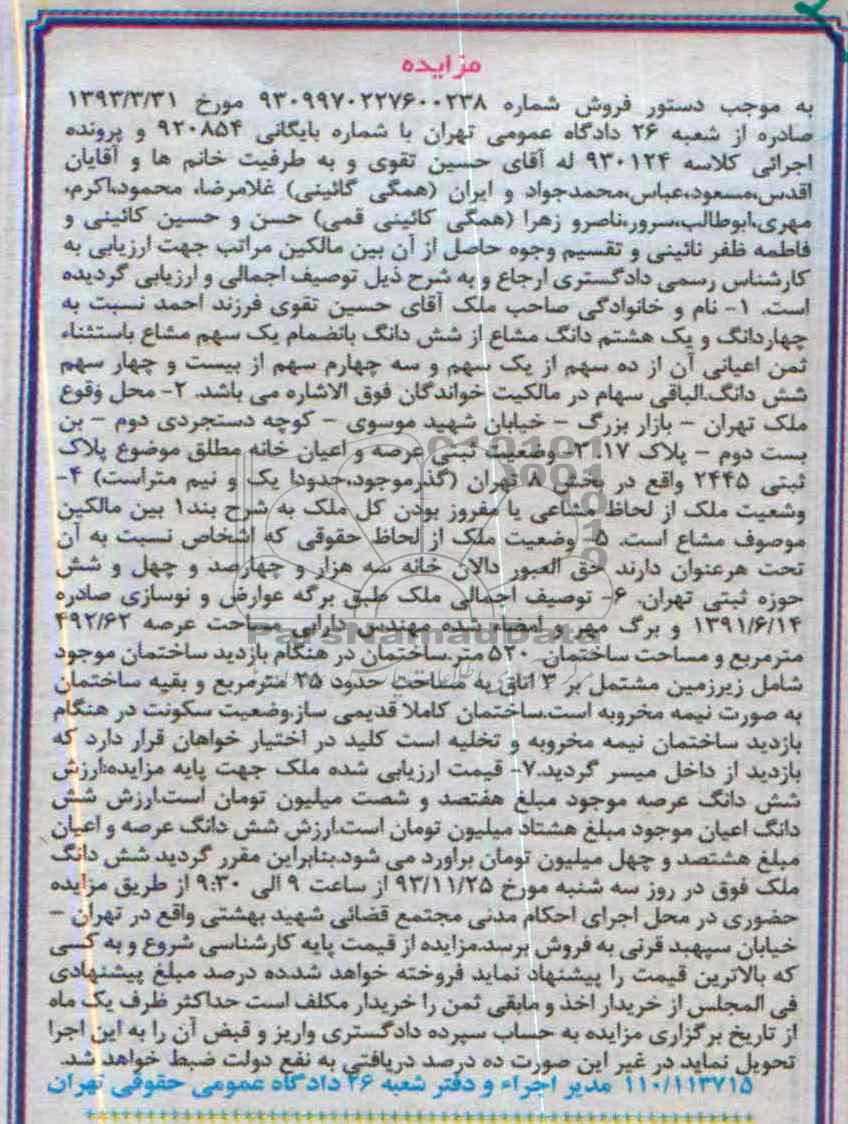 مزایده
به موجب دستور فروش شماره ۹۳۰۹۹۷۰۲۲۷۶۰۰۲۳۸ مورخ ۱۳۹۳/۳/۳۱
صادره از شعبه ۲۶ دادگاه عمومی تهران با شماره بایگانی ۹۲۰۸۵۴ و پرونده
اجرائی کلاسه ۹۳۰۱۲۴ له آقای حسین تقوی و به طرفیت خانم ها و آقایان
اقدس،مسعود،عباس،محمدجواد و ایران (همگی گائینی) غلامرضا، محمود،اکرم،
مهری،ابوطالب،سرور،ناصرو زهرا (همگی کائینی قمی) حسن و حسین کائینی و
فاطمه ظفر نائینی و تقسیم وجوه حاصل از آن بین مالکین مراتب جهت ارزیابی به
کارشناس رسمی دادگستری ارجاع و به شرح ذیل توصیف اجمالی و ارزیابی گردیده
است. ۱- نام و خانوادگی صاحب ملک آقای حسین تقوی فرزند احمد نسبت به
چهاردانگ و یک هشتم دانگ مشاع از شش دانگ بانضمام یک سهم مشاع باستثناء
ثمن اعیانی آن از ده سهم از یک سهم و سه چهارم سهم از بیست و چهار سهم
شش دانگ.الباقی سهام در مالکیت خواندگان فوق الاشاره می باشد. ۲- محل وقوع
ملک تهران – بازار بزرگ – خیابان شهید موسوی – کوچه دستجردی دوم – بن
بست دوم – پلاک ۳.۱۷- وضعیت ثبتی عرصه و اعیان خانه مطلق موضوع پلاک
ثبتی ۲۴۴۵ واقع در بخش ۸ تهران (گذرموجود،حدودا یک و نیم متراست) ۴-
وشعیت ملک از لحاظ مشاعی یا مفروز بودن کل ملک به شرح بند۱ بین مالکین
موصوف مشاع است. ۵- وضعیت ملک از لحاظ حقوقی که اشخاص نسبت به آن
تحت هرعنوان دارند حق العبور دالان خانه سه هزار و چهارصد و چهل و شش
حوزه ثبتی تهران. ۶- توصیف اجمالی ملک طبق برگه عوارض و نوسازی صادره
۱۳۹۱/۶/۱۴ و برگ مهر و امضاء شده مهندس دارابی مساحت عرصه ۴۹۲/۶۲
مترمربع و مساحت ساختمان ۵۲۰ متر.ساختمان در هنگام بازدید ساختمان موجود
شامل زیرزمین مشتمل بر ۳ اتاق به مساحت حدود ۳۵ مترمربع و بقیه ساختمان
به صورت نیمه مخروبه است.ساختمان کاملا قدیمی ساز.وضعیت سکونت در هنگام
بازدید ساختمان نیمه مخروبه و تخلیه است کلید در اختیار خواهان قرار دارد که
بازدید از داخل میسر گردید.۷- قیمت ارزیابی شده ملک جهت پایه مزایده:ارزش
شش دانگ عرصه موجود مبلغ هفتصد و شصت میلیون تومان است.ارزش شش
دانگ اعیان موجود مبلغ هشتاد میلیون تومان است.ارزش شش دانگ عرصه و اعیان
مبلغ هشتصد و چهل میلیون تومان براورد می شود.بنابراین مقرر گردید شش دانگ
ملک فوق در روز سه شنبه مورخ ۹۳/۱۱/۲۵ از ساعت ۹ الی ۹:۳۰ از طریق مزایده
حضوری در محل اجرای احکام مدنی مجتمع قضائی شهید بهشتی واقع در تهران –
خیابان سپهبد قرنی به فروش برسد.مزایده از قیمت پایه کارشناسی شروع و به کسی
که بالاترین قیمت را پیشنهاد نماید فروخته خواهد شد.ده درصد مبلغ پیشنهادی
فی المجلس از خریدار اخذ و مابقی ثمن را خریدار مکلف است حداکثر ظرف یک ماه
از تاریخ برگزاری مزایده به حساب سپرده دادگستری واریز و قبض آن را به این اجرا
تحویل نماید در غیر این صورت ده درصد دریافتی به نفع دولت ضبط خواهد شد.
۱۱۰/۱۱۳۷۱۵ مدیر اجراء و دفتر شعبه ۲۶ دادگاه عمومی حقوقی تهران
ParsNamadData